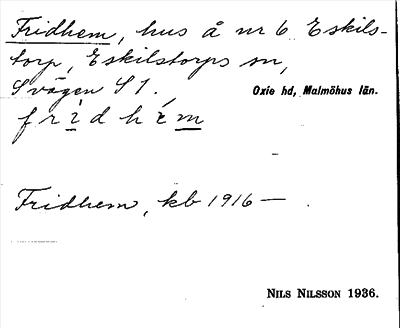 Fridhem, hus å nr 6 Eskils-
torp, Eskilstorps sn,
Svägen S 1.
Oxie hd, Malmöhus län.
f r ì d h é m
Fridhem, kb 1916 — .
NILS NILSSON 1936.